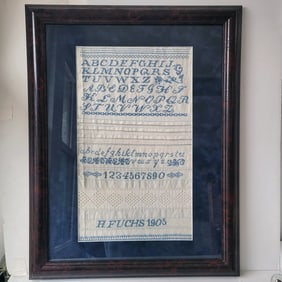 ABCDEFGHIJ
KLMNOPQRS
TUVWXZ
ABCDEFGHI
KLMNOPQR
STUVWXZ
abcdefghiklmnopqrstu
1234567890
H.FUCHS 1905